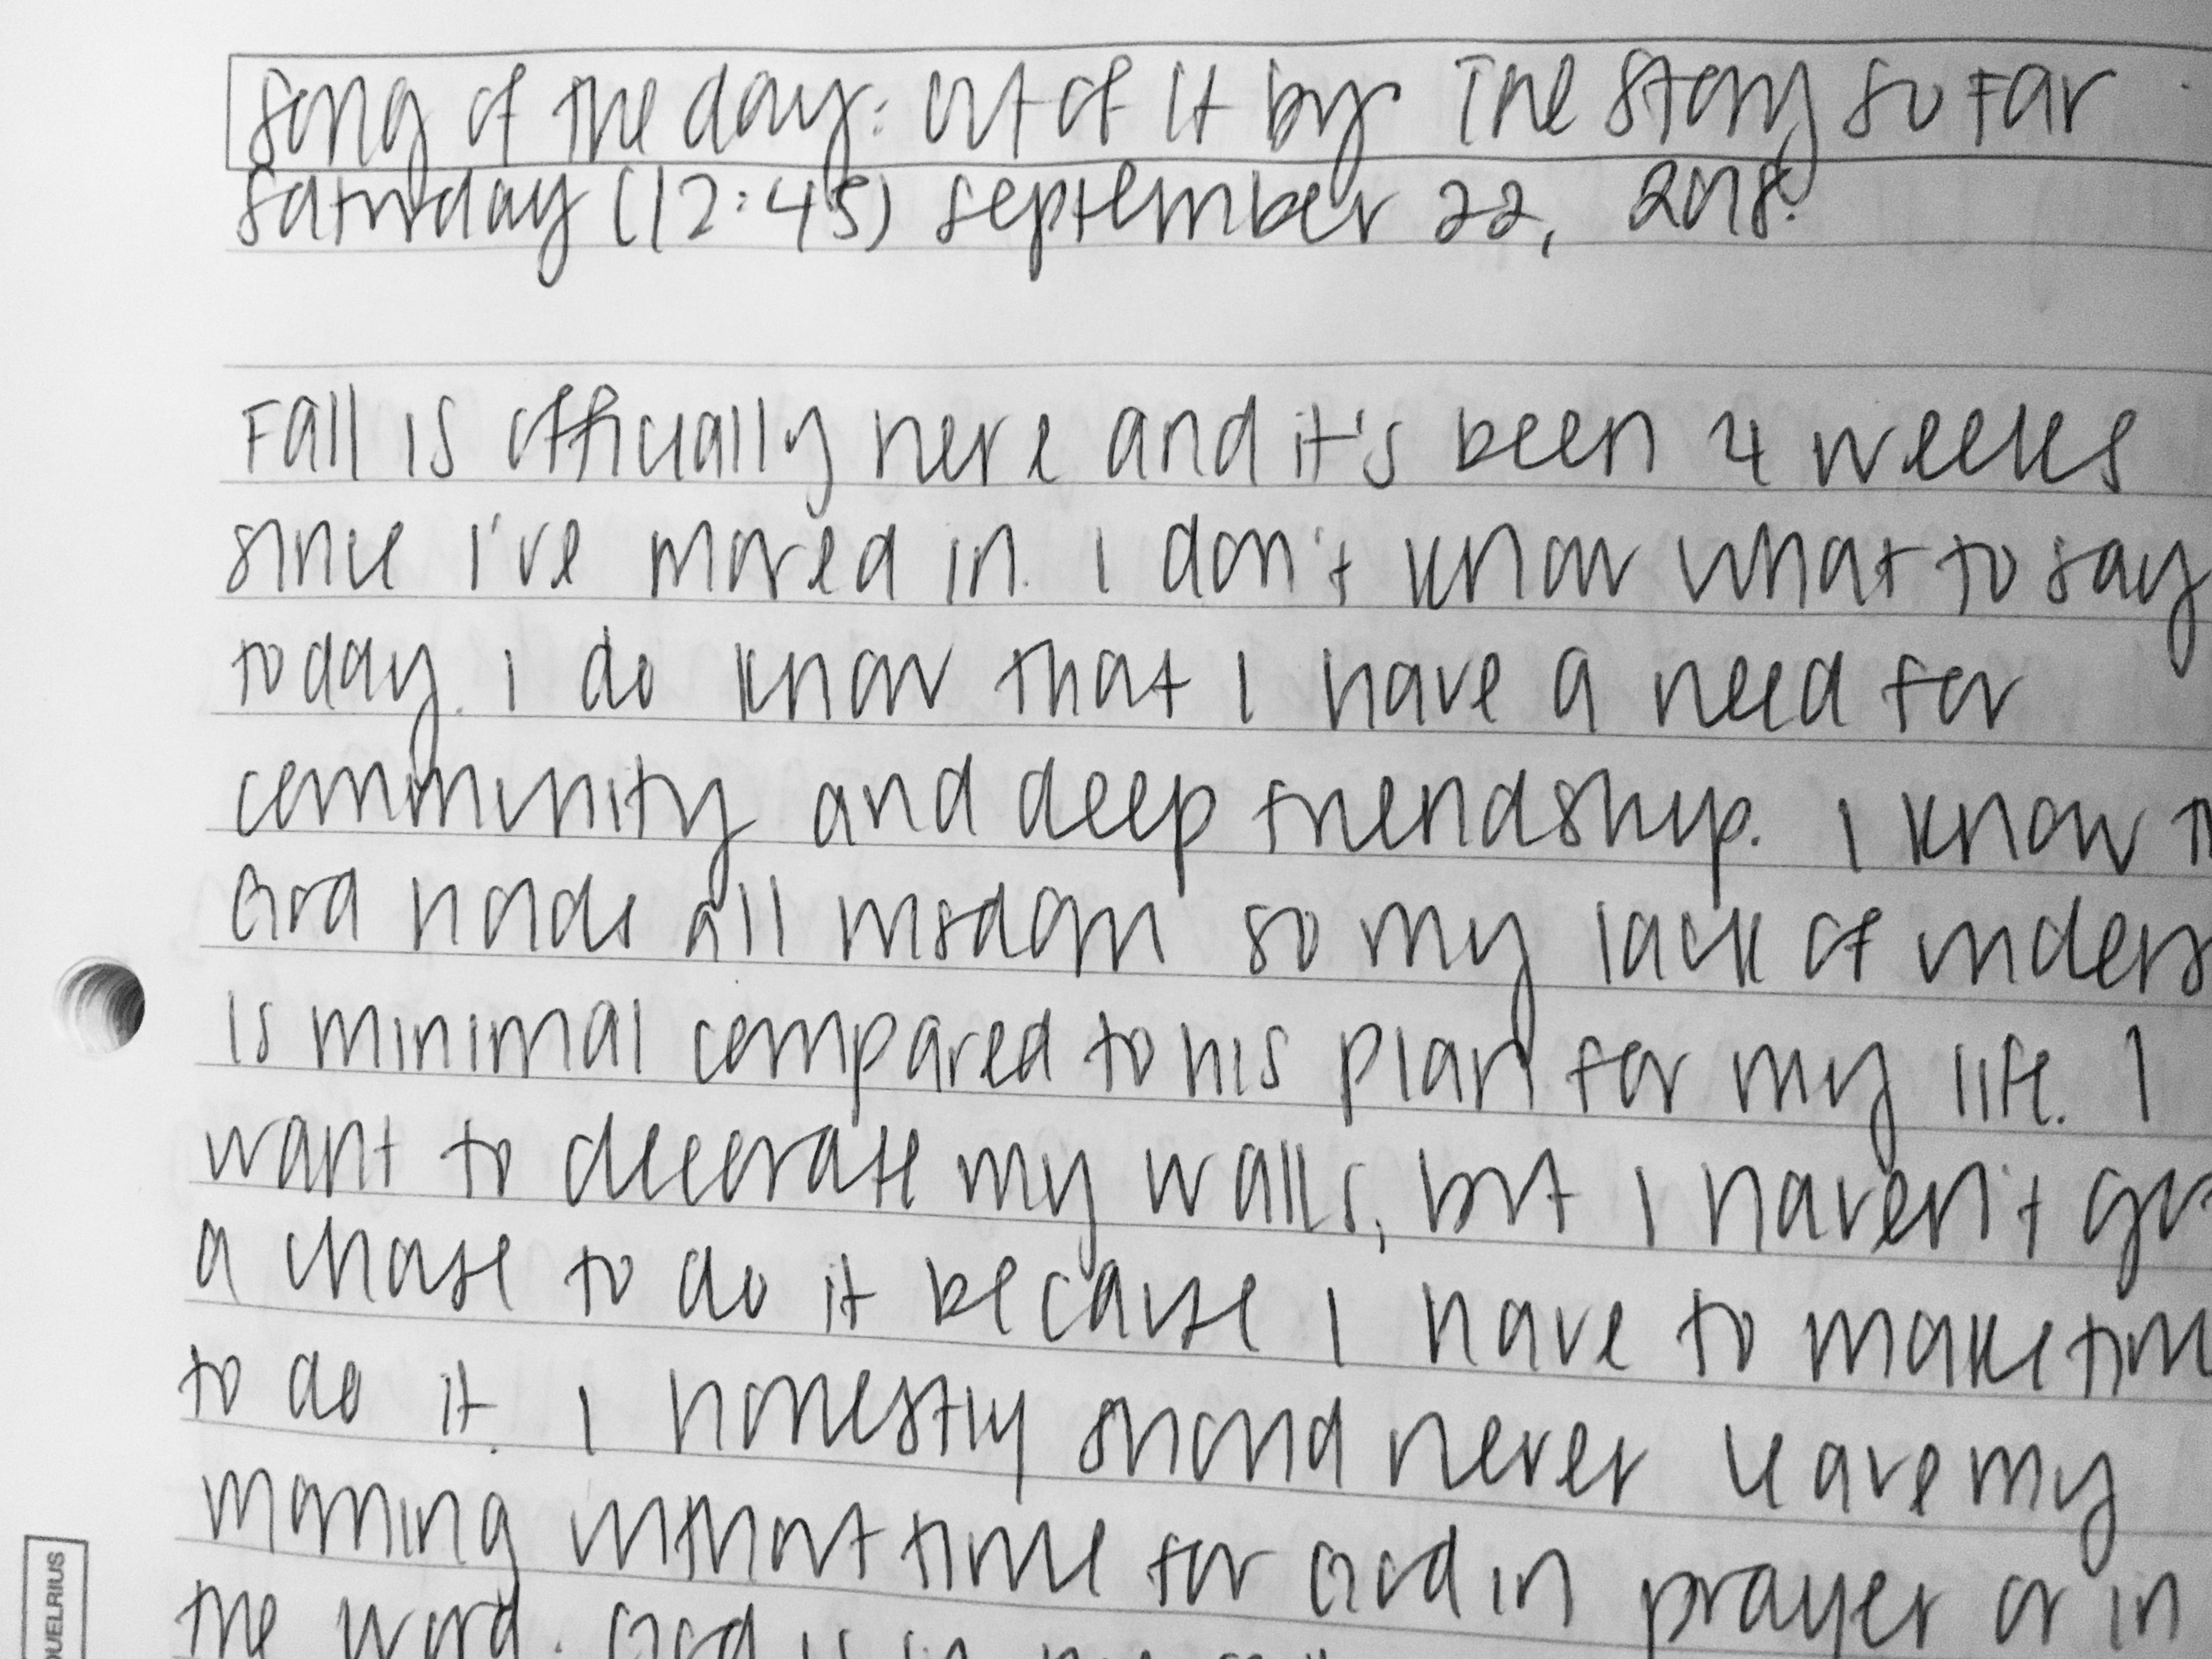 song of the day: out of it by The Story So Far
Saturday (12:45) september 22, 2018.
Fall is officially here and it's been 4 weeks
since i've moved in. I don't know what to say
today. I do know that I have a need for
community and deep friendship. I know
God holds all wisdom so my lack of unders
is minimal compared to his plan for my life. I
want to decorate my walls, but I haven't go
a chase to do it because I have to make tim
to do it. I honestly should never leave my
morning without time for God in prayer or in
the word. God is
QUELRIUS